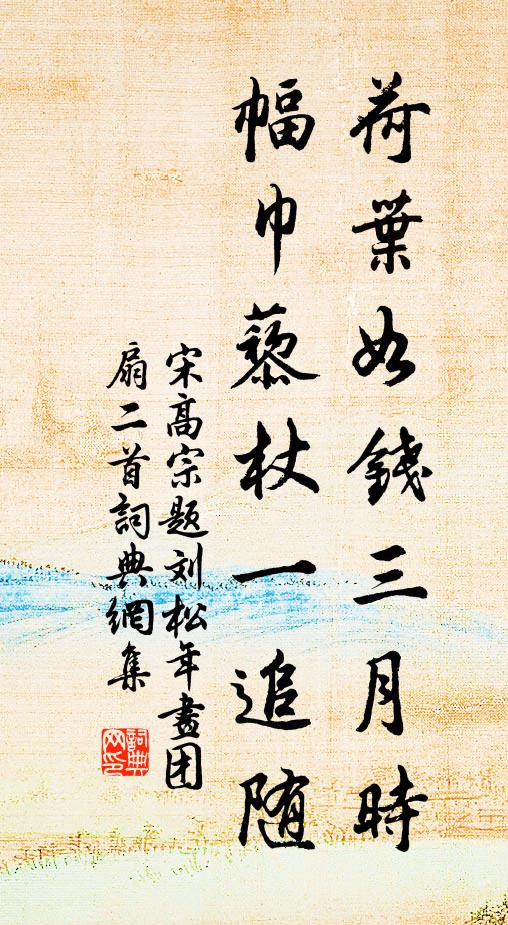 荷葉如錢三月時
幅巾藜杖一追随
宋高宗题刘松年畫团
扇二首詞典網集
詞典网印